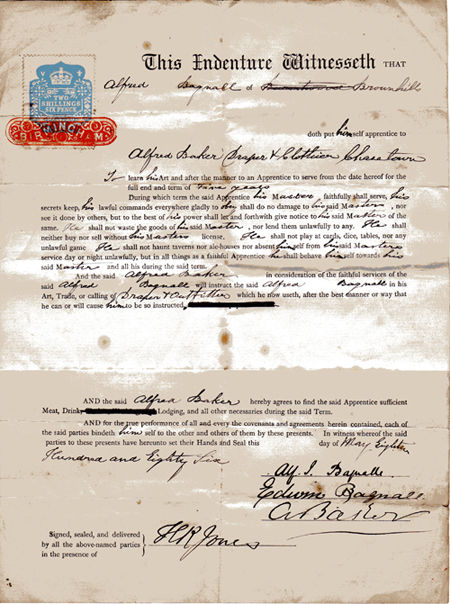 This Indenture Witnesseth THAT
TWO
SHILLINGS
SIX PENCE
Alfred Bagnall of Brownhills
doth put himself apprentice to
Alfred Baker Draper & Clothier Chasetown
To learn his Art and after the manner to an Apprentice to serve from the date hereof for the
full end and term of Five years
During which term the said Apprentice his Master, faithfully shall serve, his
secrets keep, his lawful commands everywhere gladly to do, shall do no damage to his said Master, nor
see it done by others, but to the best of his power shall let and forthwith give notice to his said Master of the
same. He shall not waste the goods of his said Master, nor lend them unlawfully to any. He shall
neither buy nor sell without his Masters license. He shall not play at cards, dice, tables, nor any
unlawful game He shall not haunt taverns nor ale-houses nor absent himself from his said Masters
service day or night unlawfully, but in all things as a faithful Apprentice he shall behave himself towards his
said Master and all his during the said term.
And the said Alfred Baker in consideration of the faithful services of the
said Alfred Bagnall will instruct the said Alfred Bagnall in his
Art, Trade, or calling of Draper & Outfitter which he now useth, after the best manner or way that
he can or will cause him to be so instructed,
AND the said Alfred Baker hereby agrees to find the said Apprentice sufficient
Meat, Drink, Lodging, and all other necessaries during the said Term.
AND for the true performance of all and every the covenants and agreements herein contained, each of
the said parties bindeth himself to the other and others of them by these presents. In witness whereof the said
parties to these presents have hereunto set their Hands and Seal this day of May Eighteen
Hundred and Eighty Six
Alf. J. Bagnall
Edwin Bagnall
A Baker
Signed, sealed, and delivered
by all the above-named parties
in the presence of
H R Jones